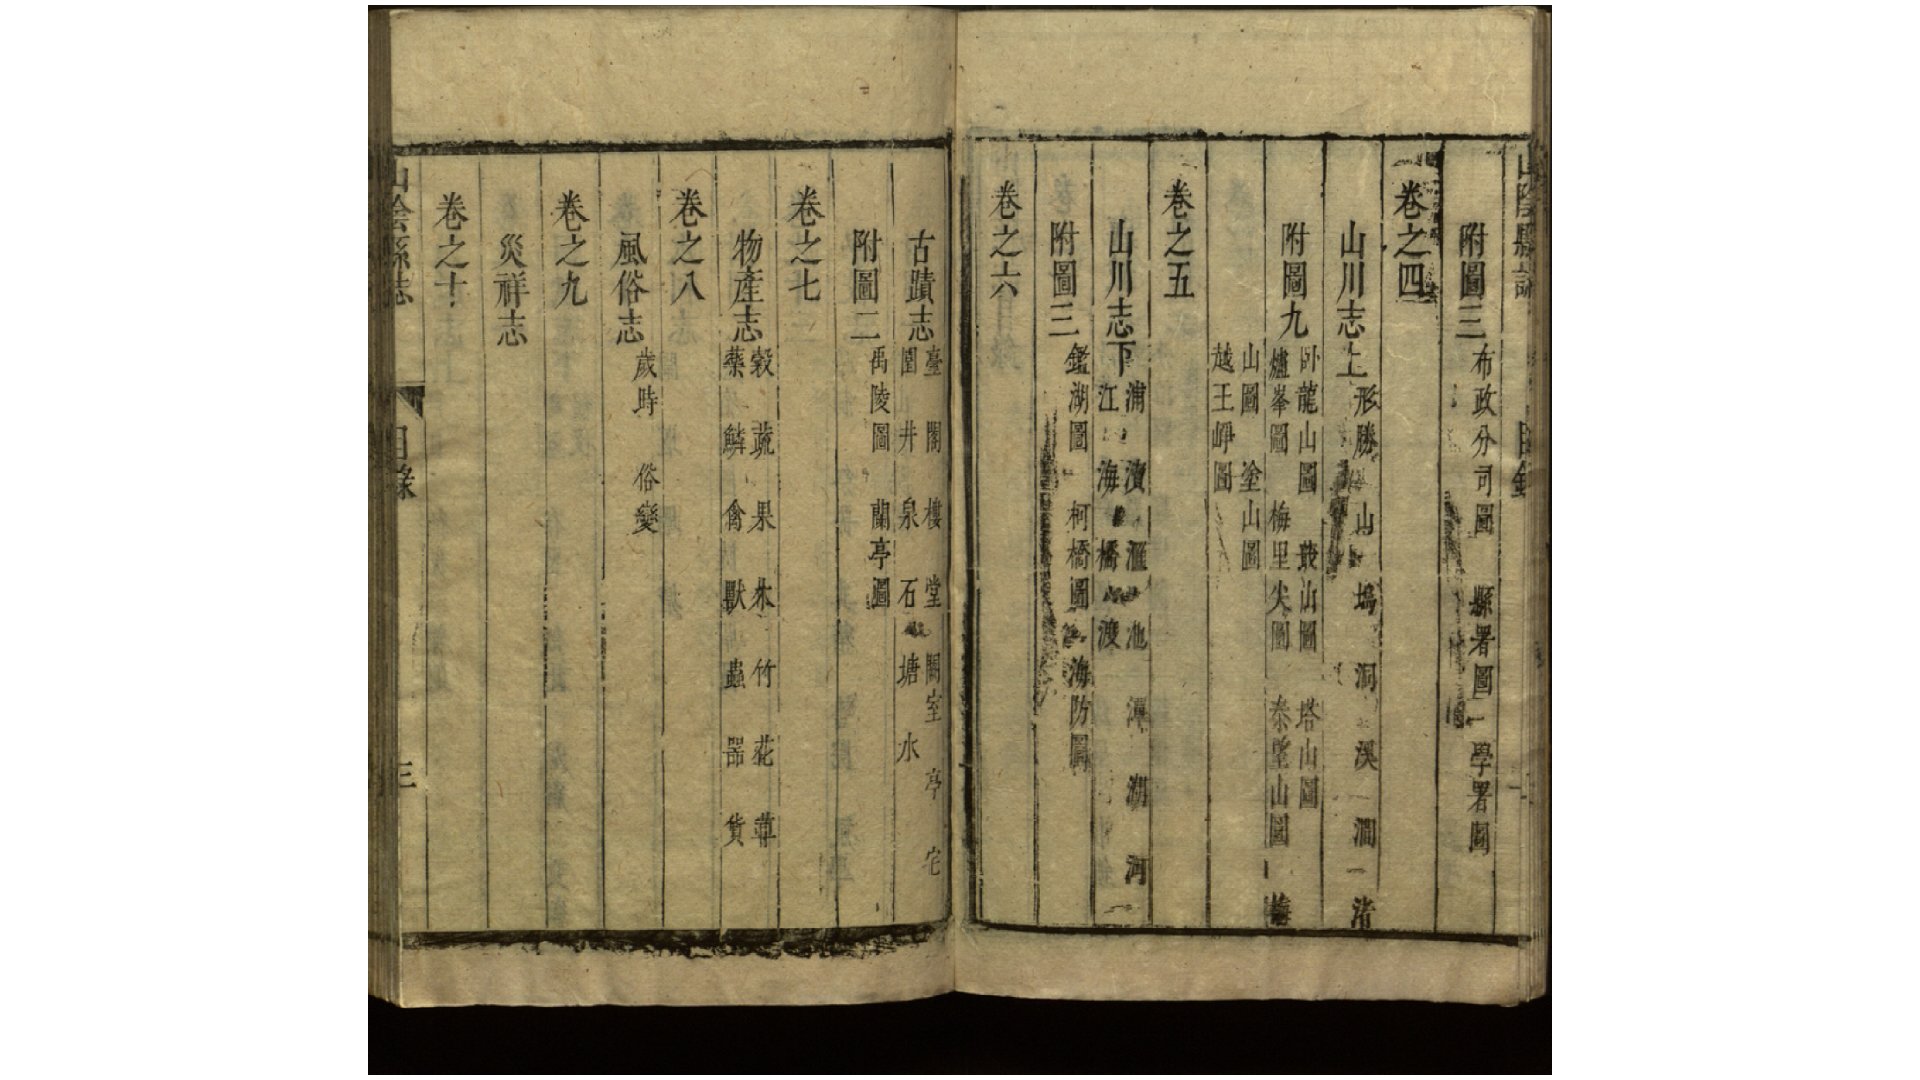 山陰縣志
目錄
附圖三 布政分司圖 縣署圖 學署圖
卷之四
山川志上 形勝 山 塢 洞 溪 澗 渚
附圖九 臥龍山圖 蕺山圖 塔山圖
爐峯圖 梅里尖圖 秦望山圖 梅
山圖 塗山圖
越王崢圖
卷之五
山川志下 浦 瀆 滙 池 潭 湖 河
江 海 橋 渡
附圖三 鑑湖圖 柯橋圖 海防圖
卷之六
古蹟志 臺 閣 樓 堂 關 室 亭 宅
園 井 泉 石 塘 水
附圖二 禹陵圖 蘭亭圖
卷之七
物產志 穀 蔬 果 木 竹 花 草
藥 鱗 禽 獸 蟲 器 貨
卷之八
風俗志 歲時 俗變
卷之九
災祥志
卷之十
山陰縣志
目錄
三